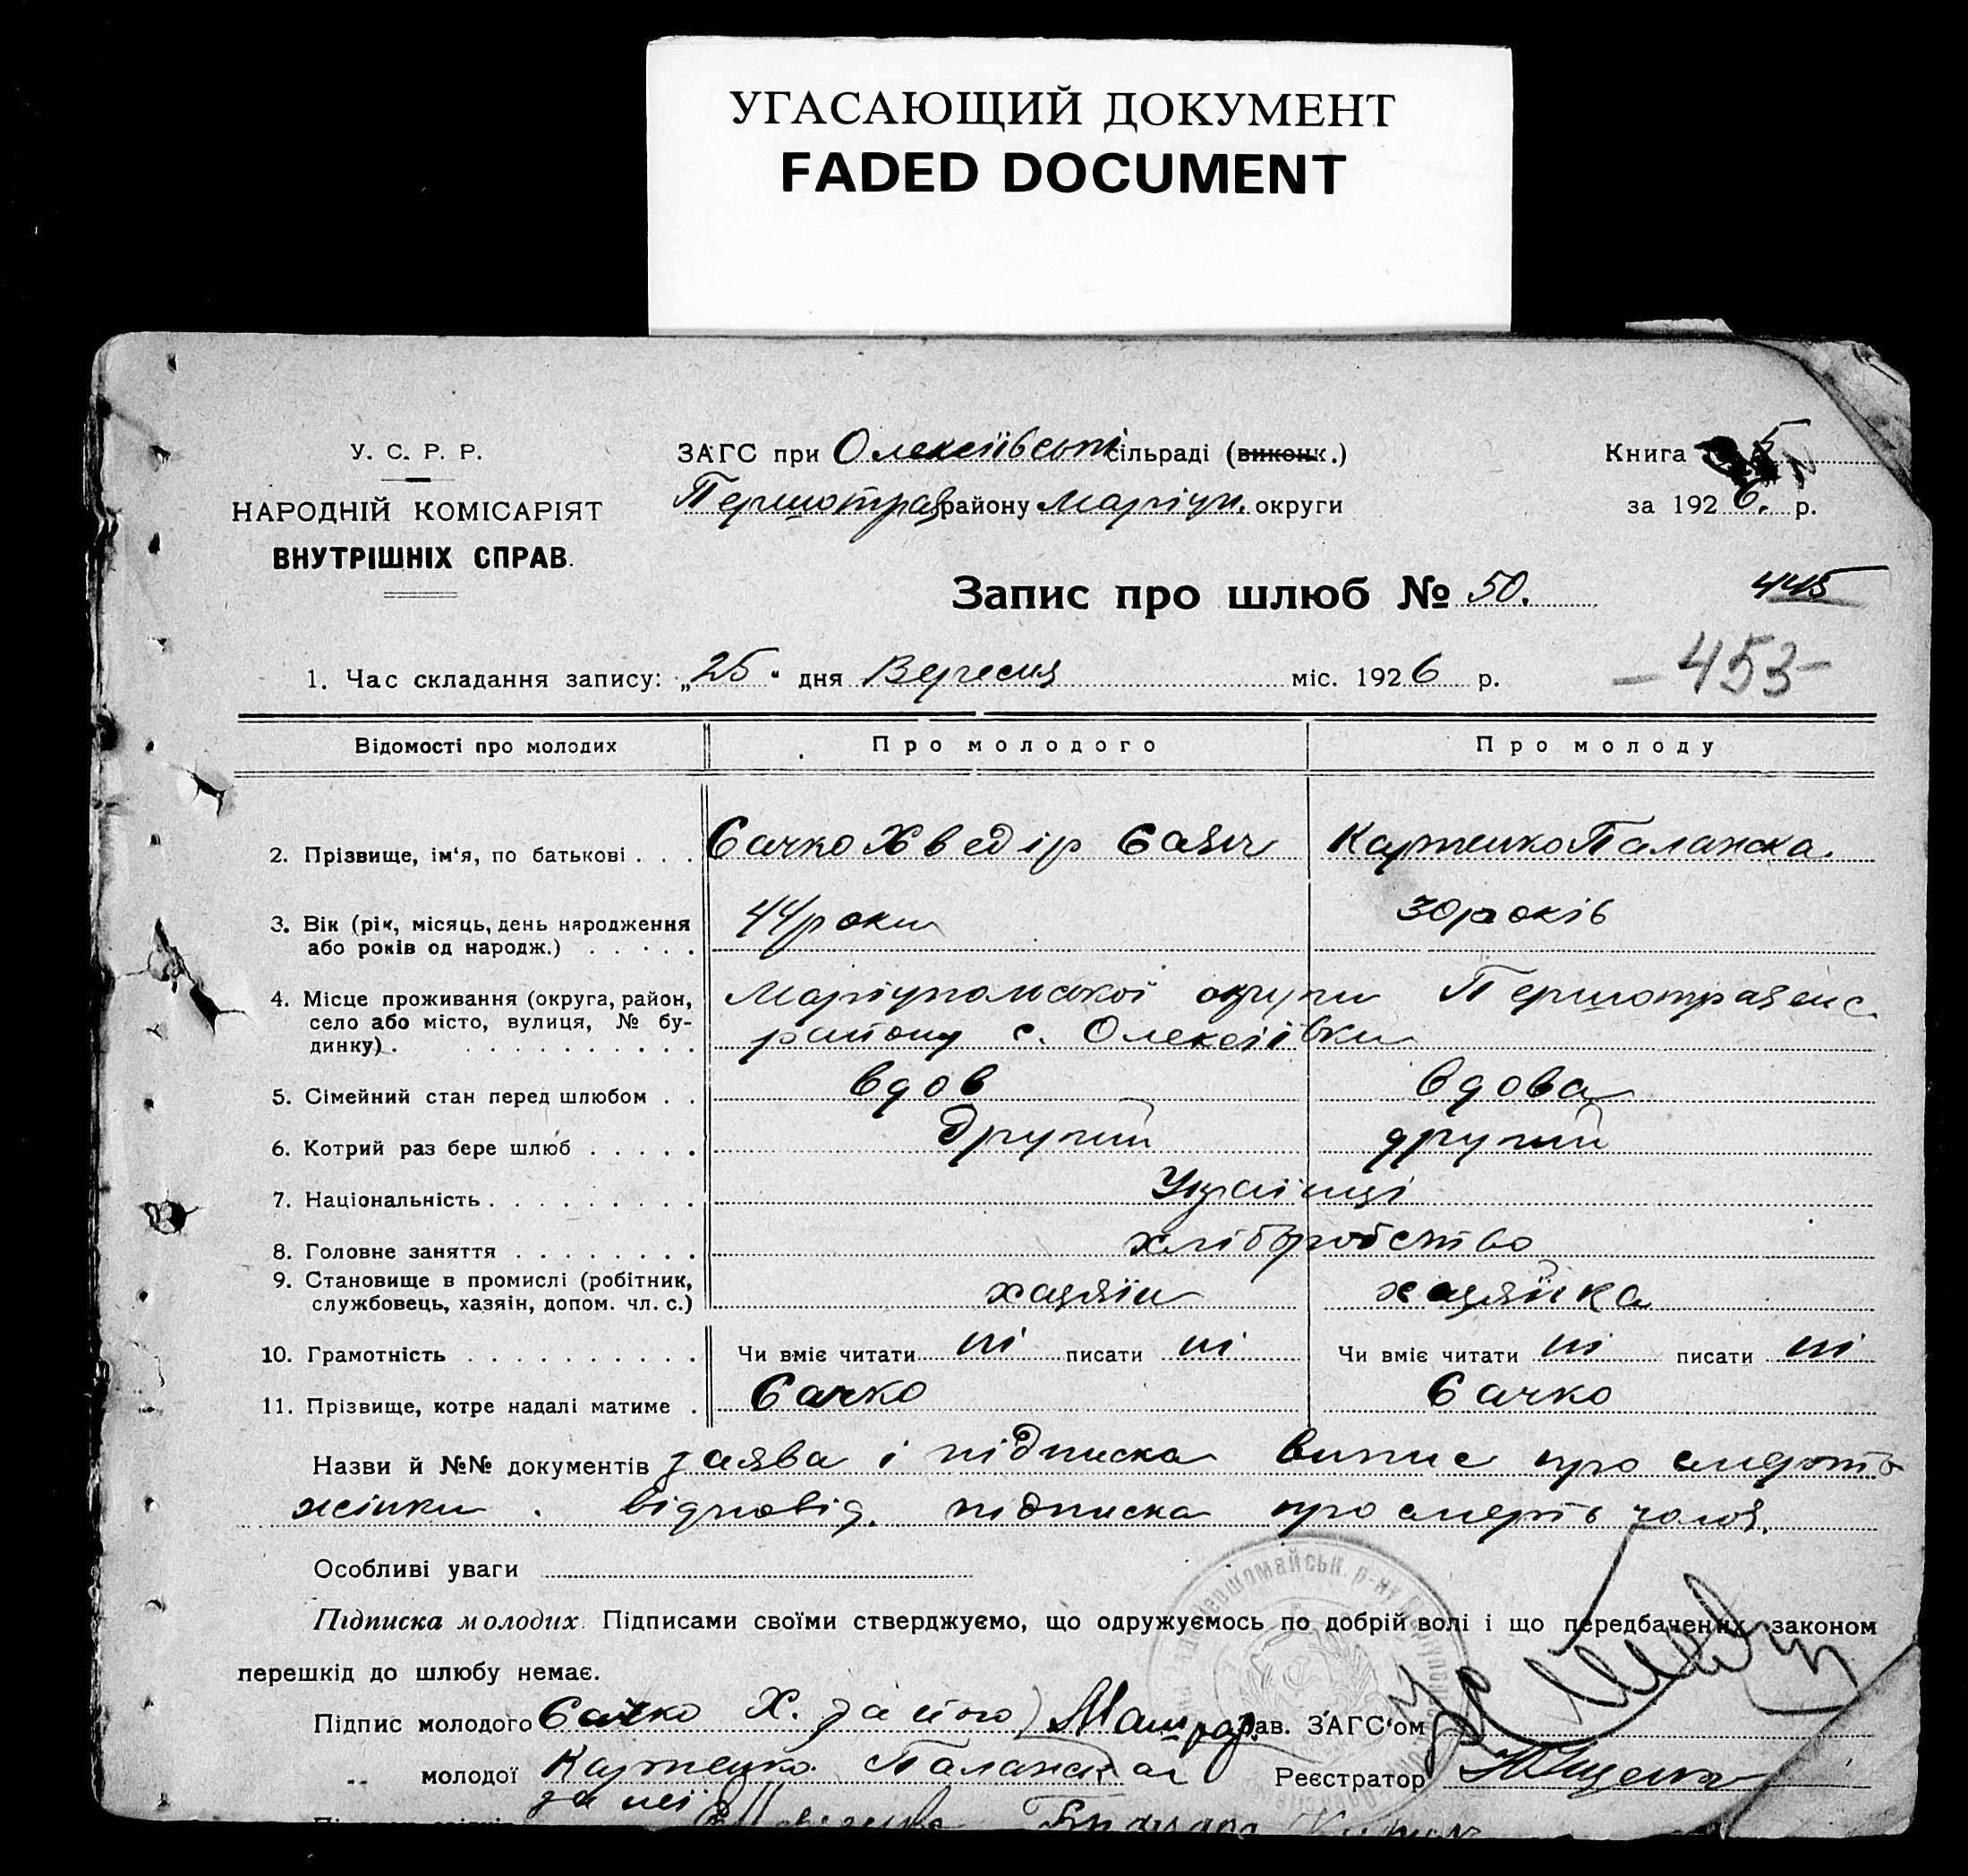 УГАСАЮЩИЙ ДОКУМЕНТ
FADED DOCUMENT
У. С. Р. Р.
НАРОДНІЙ КОМІСАРІЯТ
ВНУТРІШНІХ СПРАВ.
ЗАГС при Олексіївській сільраді (виконк.)
Першотрав району Маріуп. округи
Книга 5
за 1926. р.
Запис про шлюб № 50.
445
- 453 -
1. Час складання запису: „25" дня Вересня міс. 1926 р.
Відомості про молодих Про молодого Про молоду
2. Прізвище, ім'я, по батькові . . . Сачко Хведір Карпенко Палажка.
3. Вік (рік, місяць, день народження 44 роки 30 років
або років од народж.) . . . . .
4. Місце проживання (округа, район, Маріупольської округи Першотравенс
село або місто, вулиця, № бу- району с. Олексіївки
динку) . . . . . . . . . . .
5. Сімейний стан перед шлюбом . . вдов вдова
6. Котрий раз бере шлюб . . . . . другий другий
7. Національність . . . . . . . . . Українці
8. Головне заняття . . . . . . . . хліборобство
9. Становище в промислі (робітник, хазяїн хазяйка
службовець, хазяін, допом. чл. с.)
10. Грамотність . . . . . . . . . . Чи вміє читати ні писати ні Чи вміє читати ні писати ні
11. Прізвище, котре надалі матиме . Сачко Сачко
Назви й №№ документів заява і підписка випис про смерть
жінки. відповід. підписка про смерть чолов.
Особливі уваги
Підписка молодих. Підписами своїми стверджуємо, що одружуємось по добрій волі і що передбачених законом
перешкід до шлюбу немає.
Підпис молодого Сачко Х. за його Зав. ЗАГС'ом
„ молодої Карпенко Палажка Реєстратор
за неї